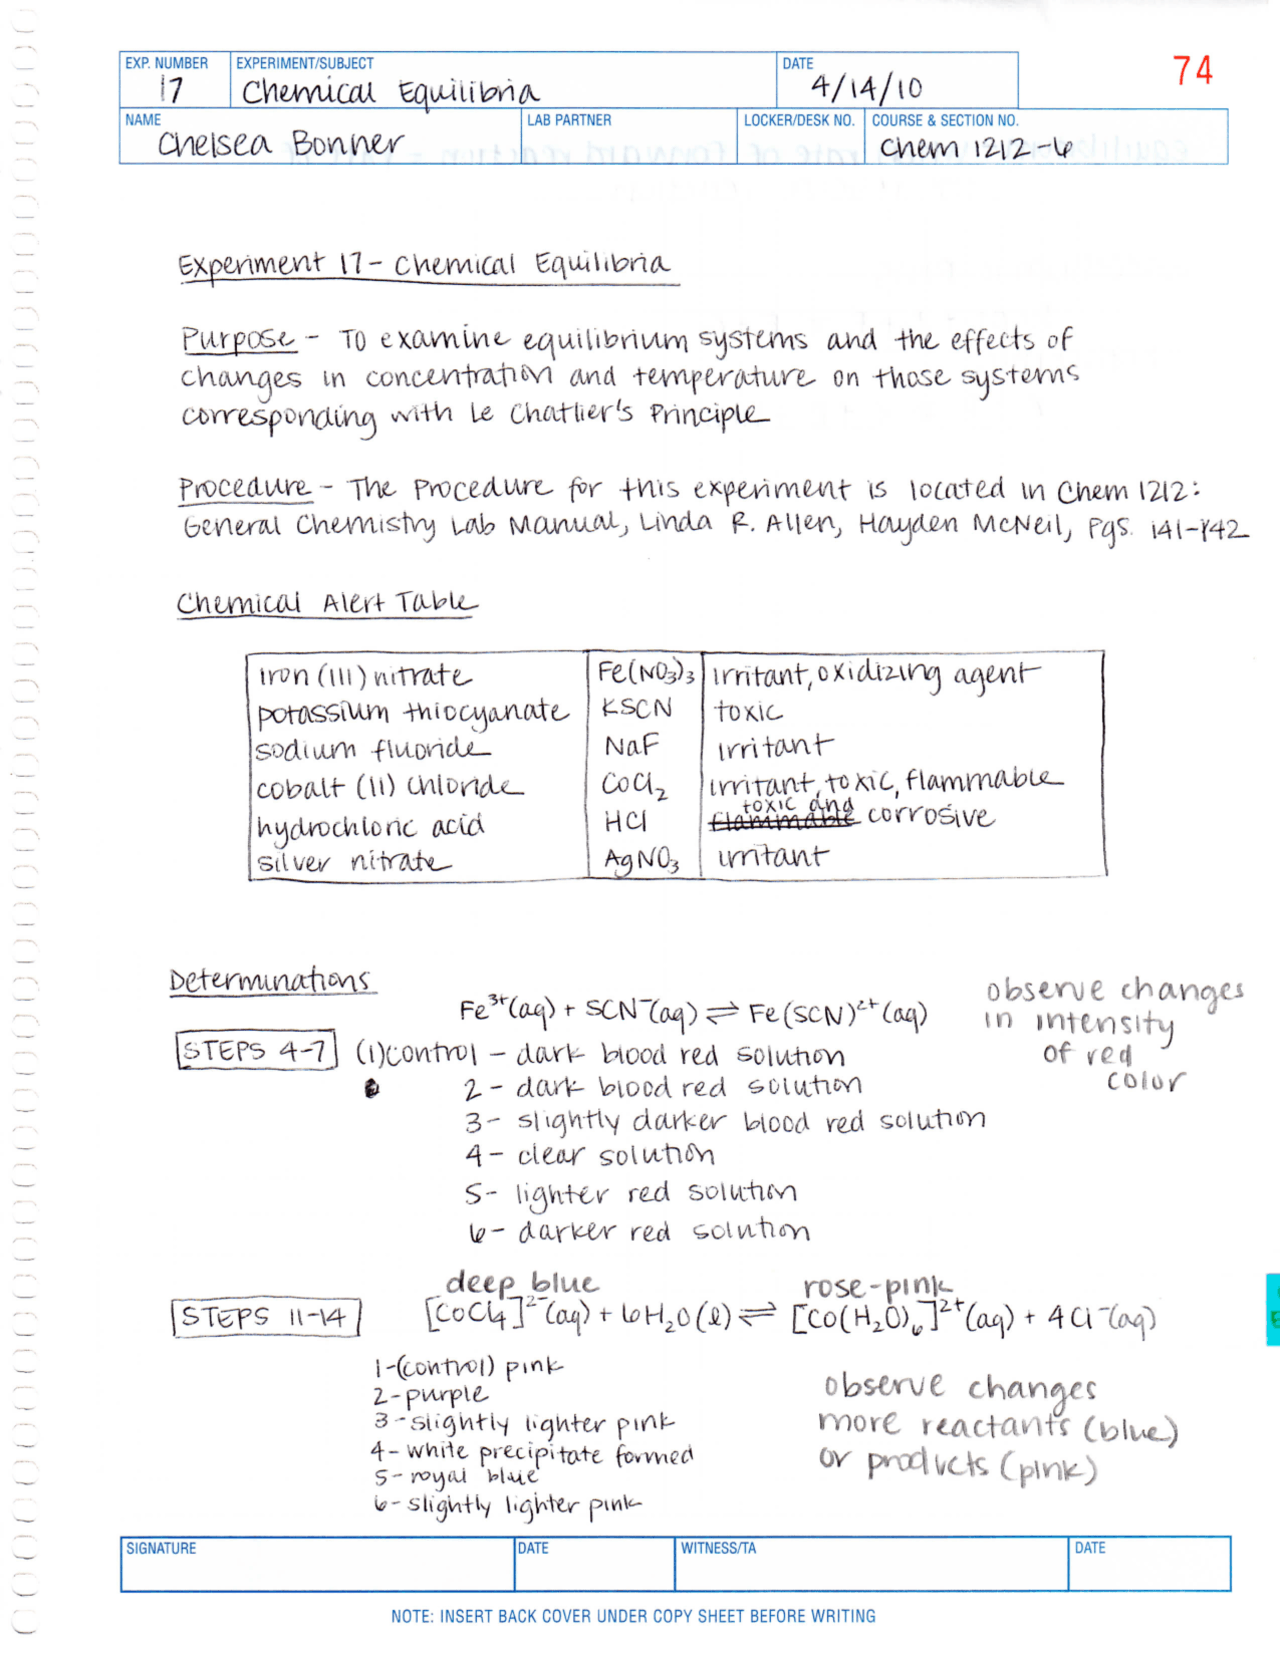 EXP. NUMBER EXPERIMENT/SUBJECT DATE 74
17 Chemical Equilibria 4/14/10
NAME LAB PARTNER LOCKER/DESK NO. COURSE & SECTION NO.
Chelsea Bonner Chem 1212-6
Experiment 17 - Chemical Equilibria
Purpose - To examine equilibrium systems and the effects of
changes in concentration and temperature on those systems
corresponding with Le Chatlier's Principle
Procedure - The Procedure for this experiment is located in Chem 1212:
General Chemistry Lab Manual, Linda R. Allen, Hayden McNeil, Pgs. 141-142
Chemical Alert Table
iron (III) nitrate Fe(NO₃)₃ irritant, oxidizing agent
potassium thiocyanate KSCN toxic
sodium fluoride NaF irritant
cobalt (II) chloride CoCl₂ irritant, toxic, flammable
toxic and
hydrochloric acid HCl flammable corrosive
silver nitrate AgNO₃ irritant
Determinations
Fe³⁺(aq) + SCN⁻(aq) ⇌ Fe(SCN)²⁺(aq)
observe changes
in intensity
of red
color
STEPS 4-7 (1)control - dark blood red solution
2 - dark blood red solution
3 - slightly darker blood red solution
4 - clear solution
5 - lighter red solution
6 - darker red solution
deep blue rose-pink
STEPS 11-14 [CoCl₄]²⁻(aq) + 6H₂O(l) ⇌ [Co(H₂O)₆]²⁺(aq) + 4Cl⁻(aq)
1-(control) pink
2-purple
3-slightly lighter pink
4-white precipitate formed
5-royal blue
6-slightly lighter pink
observe changes
more reactants (blue)
or products (pink)
SIGNATURE DATE WITNESS/TA DATE
NOTE: INSERT BACK COVER UNDER COPY SHEET BEFORE WRITING